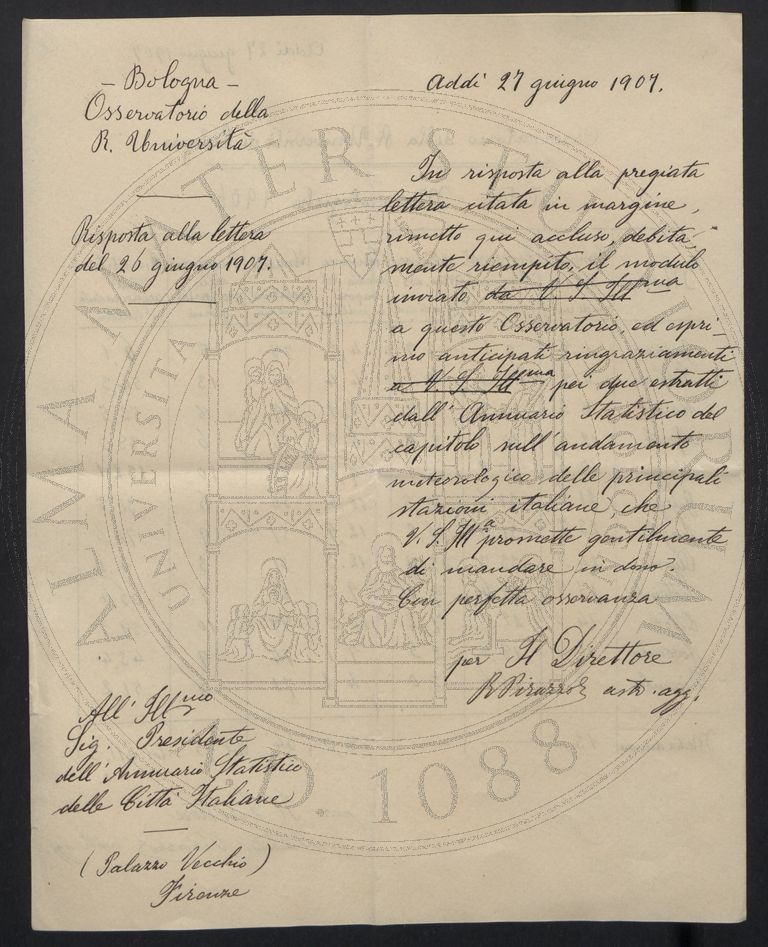 – Bologna –
Osservatorio della
R. Università
Addì 27 giugno 1907.
Risposta alla lettera
del 26 giugno 1907.
In risposta alla pregiata
lettera citata in margine,
rimetto qui accluso, debita-
mente riempito, il modulo
inviato da V. S. Ill.ma
a questo Osservatorio, ed espri-
mo anticipati ringraziamenti
a V. S. Ill.ma per due estratti
dall' Annuario Statistico del
capitolo sull' andamento
meteorologico delle principali
stazioni italiane, che
V. S. Ill.a promette gentilmente
di mandare in dono.
Con perfetta osservanza
per Il Direttore
astr. agg.
All' Ill.mo
Sig. Presidente
dell' Annuario Statistico
delle Città Italiane
(Palazzo Vecchio)
Firenze
ALMA MATER STUDIORUM
UNIVERSITA
A.D. 1088